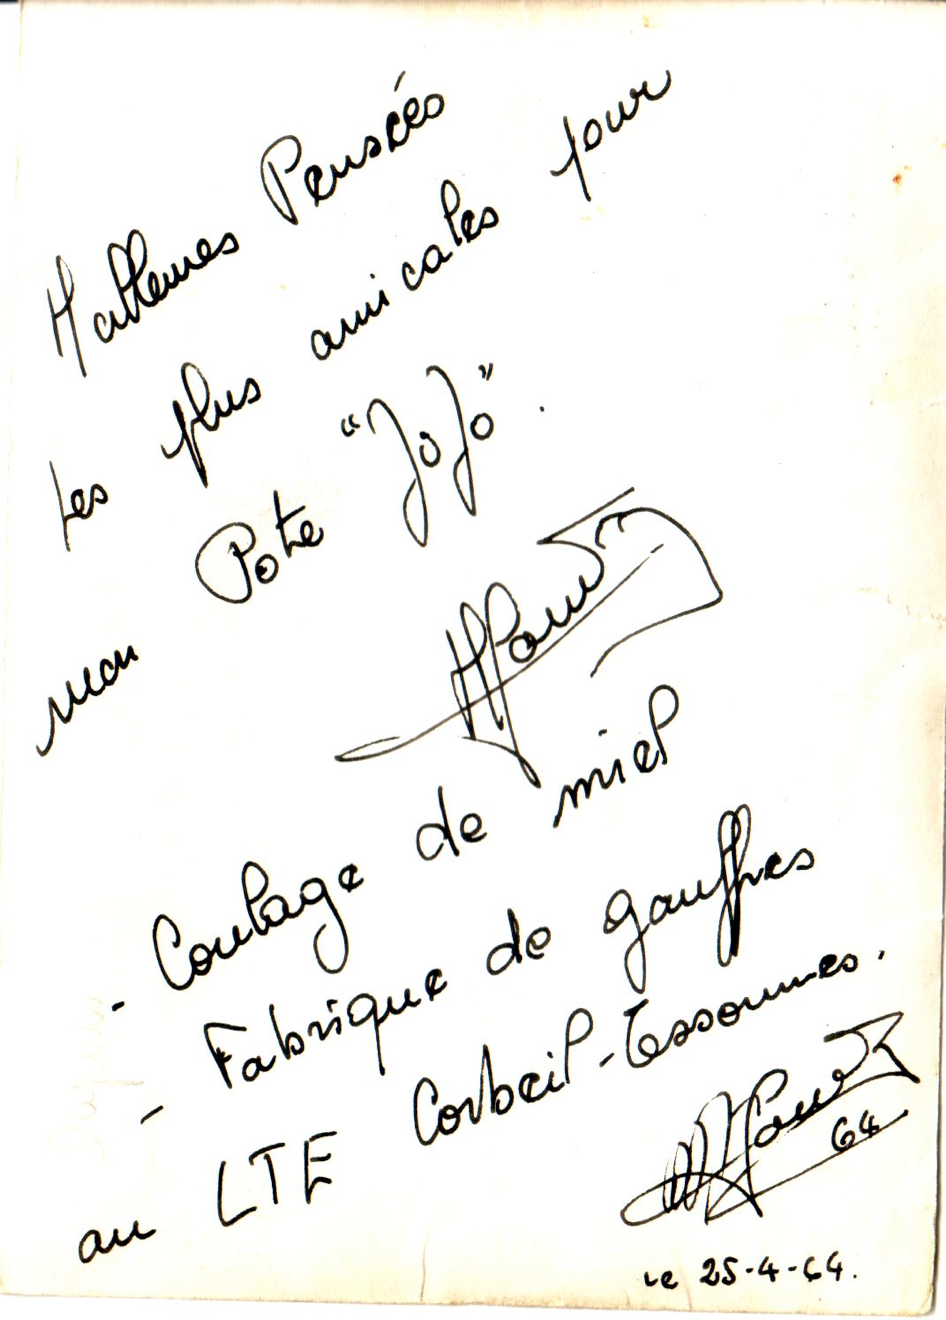 Pensées
Les plus amicales pour
mon Pote "JoJo".
- Coulage de miel
- Fabrique de gauffres
au LTE Corbeil-Essonnes.
64
Le 25-4-64.